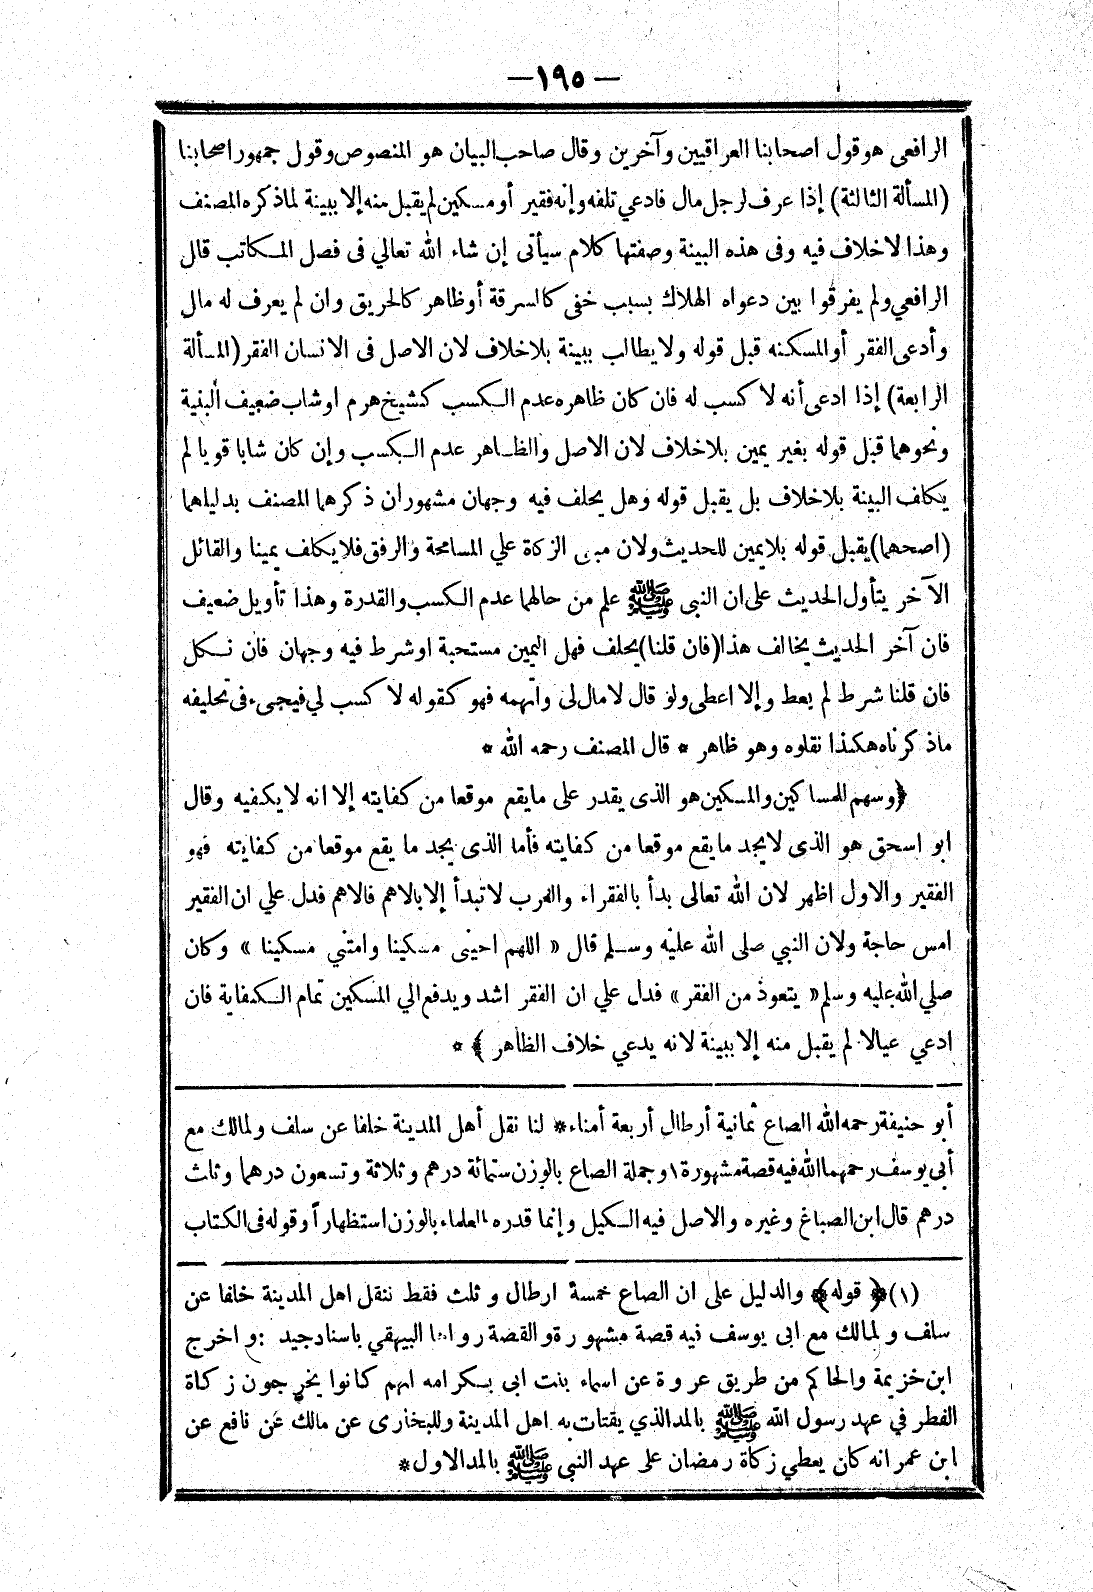 — ١٩٥ —
الرافعى هو قول اصحابنا العراقيين وآخرين وقال صاحب البيان هو المنصوص وقول جمهور اصحابنا
(المسألة الثالثة) إذا عرف لرجل مال فادعي تلفه وإنه فقير أو مسكين لم يقبل منه إلا ببينة لما ذكره المصنف
وهذا لا خلاف فيه وفى هذه البينة وصفتها كلام سيأتى إن شاء الله تعالي فى فصل المكاتب قال
الرافعي ولم يفرقوا بين دعواه الهلاك بسبب خفى كالسرقة أو ظاهر كالحريق وان لم يعرف له مال
وأدعى الفقر أو المسكنه قبل قوله ولا يطالب ببينة بلا خلاف لان الاصل فى الانسان الفقر (المسألة
الرابعة) إذا ادعى أنه لا كسب له فان كان ظاهره عدم الكسب كشيخ هرم او شاب ضعيف البنية
ونحوهما قبل قوله بغير يمين بلا خلاف لان الاصل والظاهر عدم الكسب وإن كان شابا قويا لم
يكلف البينة بلا خلاف بل يقبل قوله وهل يحلف فيه وجهان مشهوران ذكرهما المصنف بدليلهما
(اصحهما) يقبل قوله بلا يمين للحديث ولان مبنى الزكاة علي المسامحة والرفق فلا يكلف يمينا والقائل
الآخر يتأول الحديث على ان النبى ﷺ علم من حالهما عدم الكسب والقدرة وهذا تأويل ضعيف
فان آخر الحديث يخالف هذا (فان قلنا) يحلف فهل اليمين مستحبة او شرط فيه وجهان فان نكل
فان قلنا شرط لم يعط وإلا اعطى ولو قال لا مال لى واتهمه فهو كقوله لا كسب لي فيجىء فى تحليفه
ماذكرناه هكذا نقلوه وهو ظاهر * قال المصنف رحمه الله *
﴿وسهم للمساكين والمسكين هو الذى يقدر على مايقع موقعا من كفايته إلا انه لا يكفيه وقال
ابو اسحق هو الذى لا يجد مايقع موقعا من كفايته فأما الذى يجد ما يقع موقعا من كفايته فهو
الفقير والاول اظهر لان الله تعالى بدأ بالفقراء والعرب لا تبدأ إلا بالاهم فالاهم فدل علي ان الفقير
امس حاجة ولان النبي صلى الله عليه وسلم قال « اللهم احينى مسكينا وامتني مسكينا » وكان
صلي الله عليه وسلم « يتعوذ من الفقر » فدل علي ان الفقر اشد ويدفع الي المسكين تمام الكفاية فان
ادعي عيالا لم يقبل منه إلا ببينة لانه يدعي خلاف الظاهر ﴾ *
أبو حنيفة رحمه الله الصاع ثمانية أرطال أربعة أمناء * لنا نقل أهل المدينة خلفا عن سلف ولمالك مع
أبي يوسف رحمهما الله فيه قصة مشهورة ١ وجملة الصاع بالوزن ستمائة درهم وثلاثة وتسعون درهما وثلث
درهم قال ابن الصباغ وغيره والاصل فيه الكيل وإنما قدره العلماء بالوزن استظهاراً وقوله فى الكتاب
(١) ﴿ قوله ﴾ والدليل على ان الصاع خمسة ارطال وثلث فقط نقل اهل المدينة خلفا عن
سلف ولمالك مع ابى يوسف فيه قصة مشهورة والقصة رواها البيهقي باسناد جيد : واخرج
ابن خزيمة والحاكم من طريق عروة عن اسماء بنت ابى بكر امه انهم كانوا يخرجون زكاة
الفطر في عهد رسول الله ﷺ بالمد الذي يقتات به اهل المدينة وللبخارى عن مالك عن نافع عن
ابن عمر انه كان يعطي زكاة رمضان على عهد النبي ﷺ بالمد الاول *